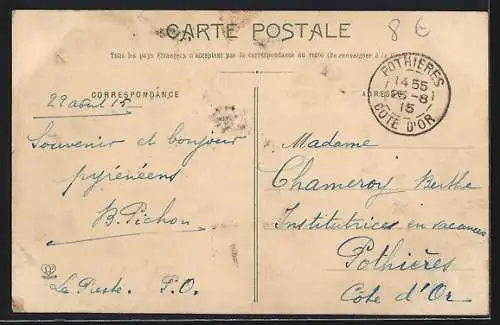 CARTE POSTALE
8 €
Tous les pays étrangers n'acceptent pas la correspondance au recto (Se renseigner à la
CORRESPONDANCE
29 août 15
Souvenir et bonjour
pyrénéens
B. Pichon
La Preste. P.O.
POTHIÈRES
14 55
-8
15
COTE D'OR
Madame
Chameroy Berthe
Institutrices en vacances
Pothières
Côte d'Or